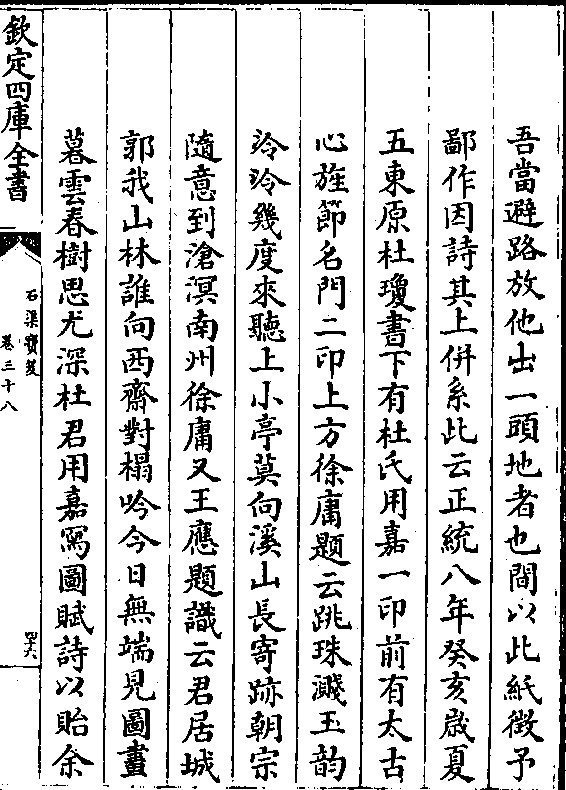 吾當避路放他出一頭地者也間以此紙徴予
鄙作因詩其上併系此云正統八年癸亥歳夏
五東原杜瓊書下有杜氏用嘉一印前有太古
心旌節名門二印上方徐庸題云跳珠濺玉韵
泠泠幾度來聽上小亭莫向溪山長寄跡朝宗
隨意到滄溟南州徐庸又王應題識云君居城
郭我山林誰向西齋對榻吟今日無端見圖畫
暮雲春樹思尤深杜君用嘉寫圖賦詩以貽余
欽定四庫全書
石渠寶笈
卷三十八
四十六